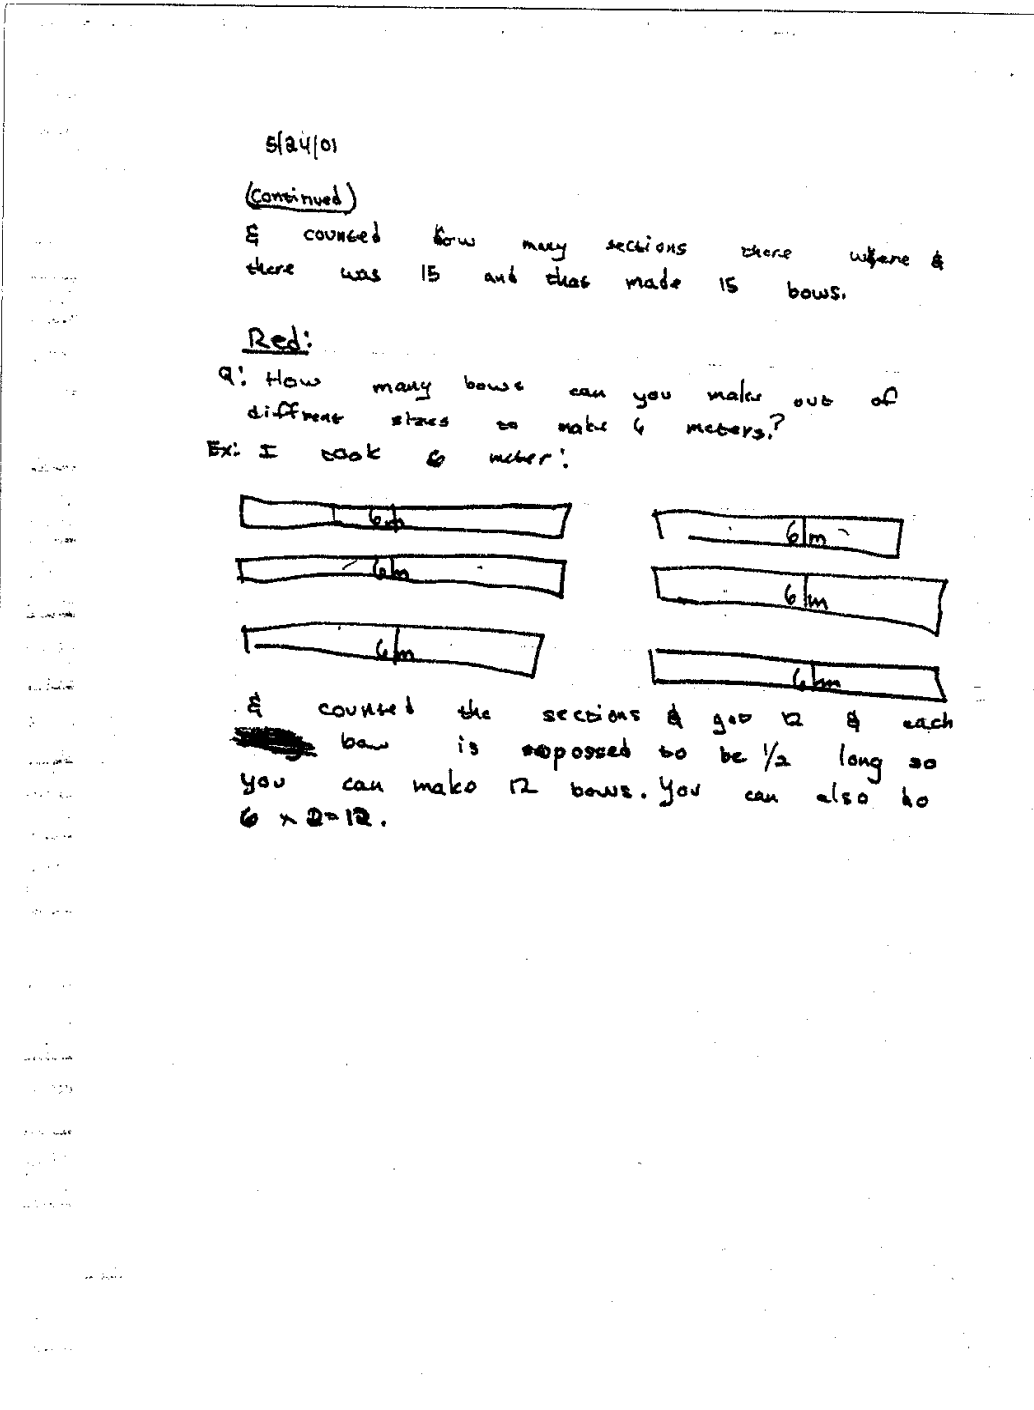 5/24/01
(Continued)
& counted how many sections there where &
there was 15 and that made 15 bows.
Red:
Q: How many bows can you make out of
diffrent sizes to make 6 meters.?
Ex: I took 6 meter:
6m 6m
6m 6m
6m 6m
& counted the sections & got 12 & each
bow is suppossed to be 1/2 long so
you can make 12 bows. You can also do
6 x 2=12.